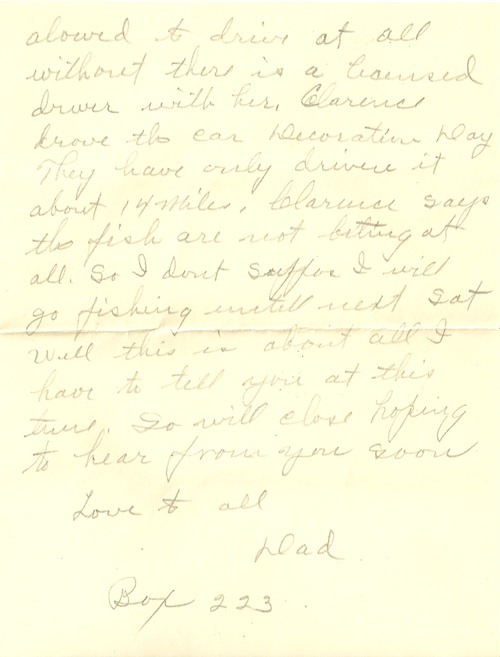 alowed to drive at all
without there is a licensed
driver with her. Clarence
drove the car Decoration Day
They have only driven it
about 14 miles. Clarence says
the fish are not biting at
all. So I dont suppos I will
go fishing untill next Sat
Well this is about all I
have to tell you at this
time. So will close hoping
to hear from you soon
Love to all
Dad
Box 223